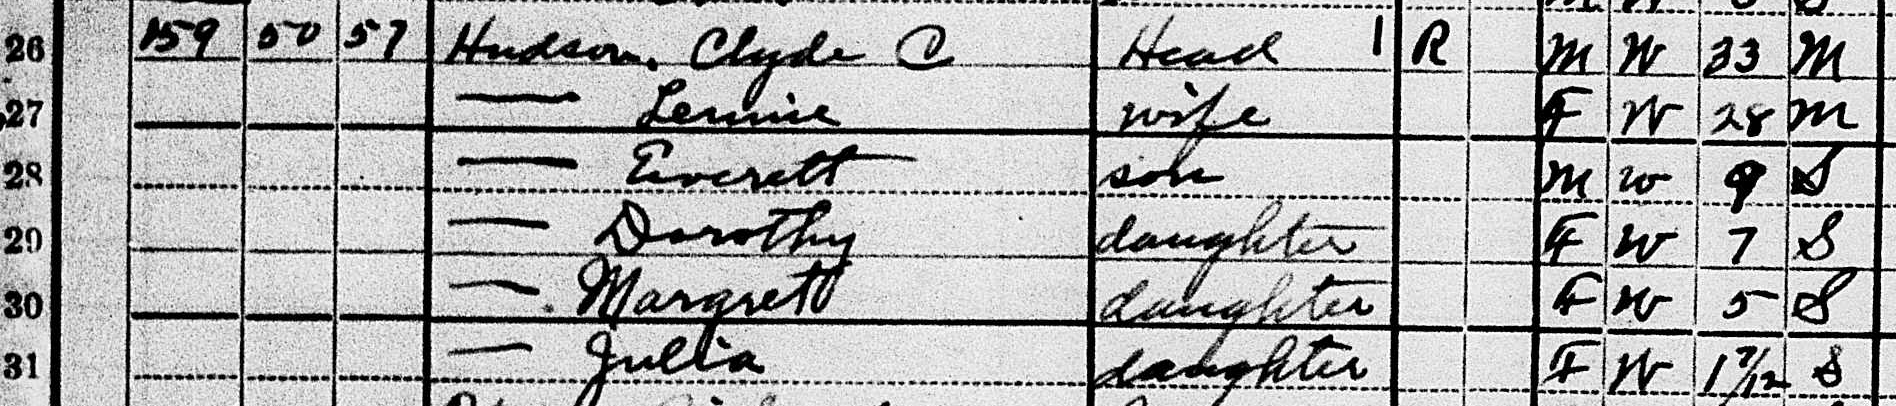 26 159 50 57 Hudson, Clyde C Head 1 R M W 33 M
27 — Lennie wife F W 28 M
28 — Everett son M W 9 S
29 — Dorothy daughter F W 7 S
30 — Margrett daughter F W 5 S
31 — Julia daughter F W 1 7/12 S